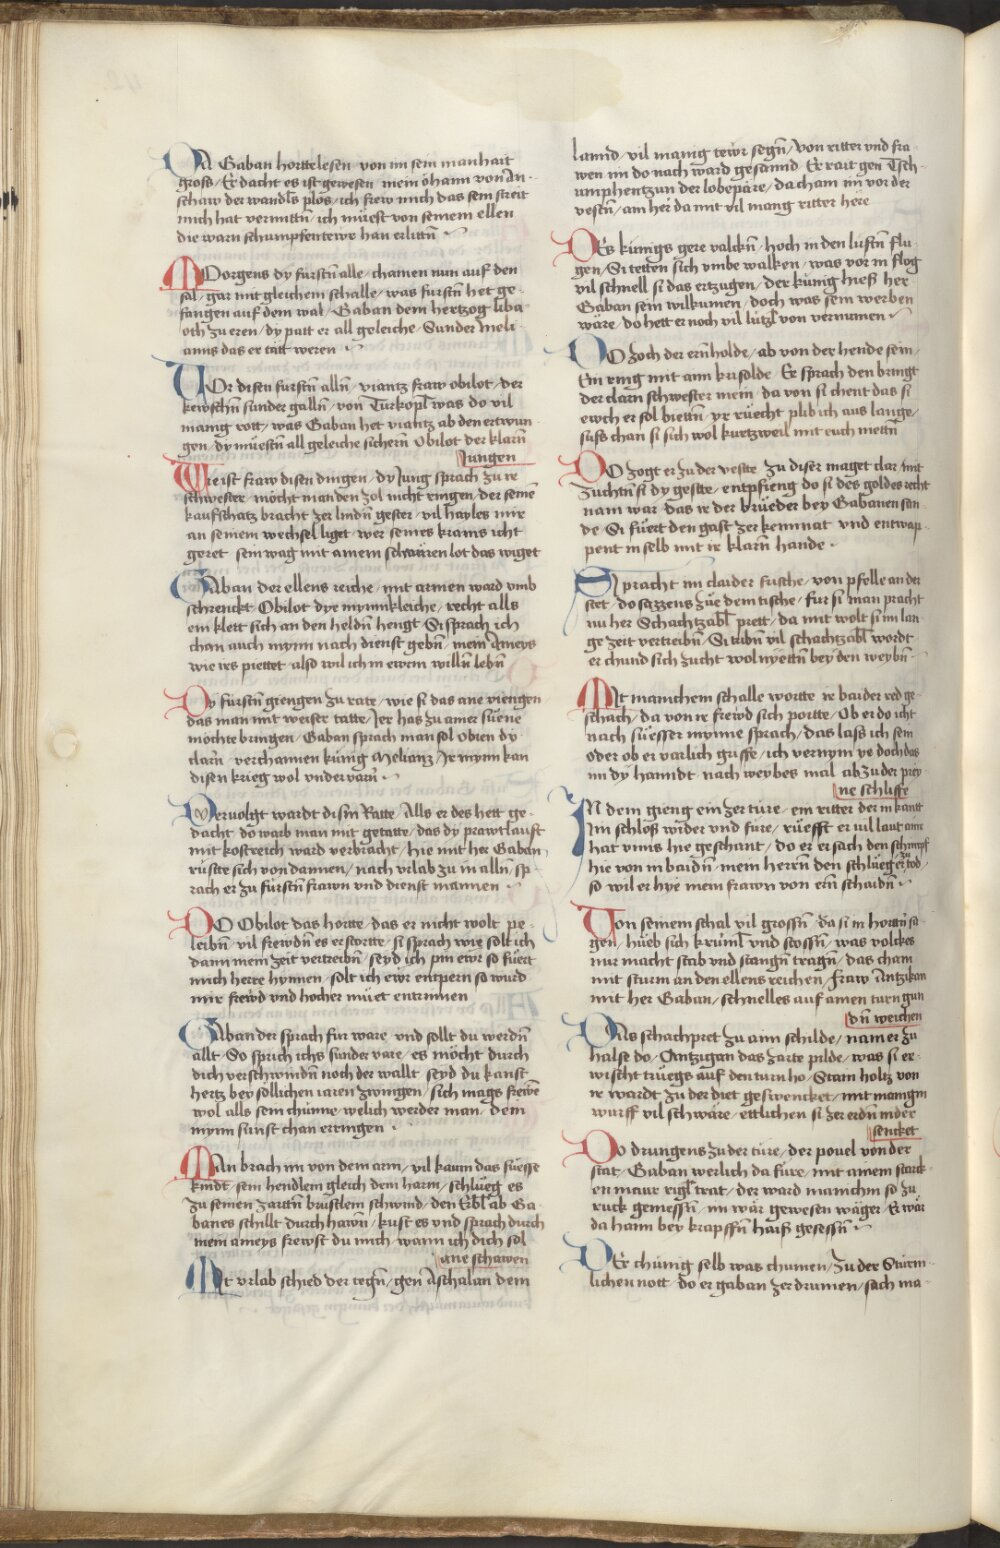 DA Gaban hortte lesen von im sein manhait
gross / Er dacht es ist gewesen mein öhaim von An-
schaw der wandls plos / ich frew mich das sein streit
mich hat vermittn / ich müest von seinem ellen
die warn schumpfentewr han erlittn
MOrgens dy fürstn alle / chamen nun auf den
sal / gar mit gleichem schalle / was fürstn het ge-
fangen auf dem wal / Gaban dem hertzog liba
oth zu eren / dy patt er all geleiche / Sunder Meli
anns das er tätt weren
VOr disen fürstn alln / viantz fraw obilot / der
kewschn sunder galln / von Turkopl was do vil
manig rott / was Gaban het viantz ab den ertwun
gen / dy müestn all geleiche sichern Obilot der klarn
Jungen
Wie ist fraw disen dingen / dy Jung sprach zu ir
schwester / möcht man den zol nicht ringen / der seinē
kaufschatz bracht zer lindn gester / vil hayles mir
an seinem wechsel liget wer seines krams icht
geret sein wag mit ainem schwären lot das wiget
GAban der ellens reiche / mit armen ward vmb
schrenckt Obilot dye mynnikleiche / recht alls
ein klett sich an den heldn hengt Si sprach ich
chan auch mynn nach dienst gebn / mein Ameys
wie irs piettet also wil ich in ewem willn lebn
Dy fürstn giengen zu rate / wie si das ane viengen
das man mit weiser tatte / Jer has zu ainer süene
möchte bringen / Gaban sprach man sol Obien dy
clarn / verchamen künig Melianz / Jr mynn kan
disen krieg wol vndervarn
Vervolgt wardt dism Ratte / Alls er des hett ge-
dacht do warb man mit getatte / das dy prawtlauft
mit kostreich ward verbracht / hie mit her Gaban
rüstte sich von dannen / nach vrlab zu in alln / sp-
rach er zu fürstn frawn vnd dienst mannen
DO Obilot das hortte / das er nicht wolt pe-
leibn / vil frewdn es er störtte / si sprach wie solt ich
dann mein zeit vertreibn / seyd ich pin ewr so füert
mich herre hynnen / solt ich ewr entpern so wurd
mir frewd vnd hocher müet entrinnen
GAban der sprach fur ware vnd sollt du werdn
allt So sprich ichs sunder vare / es möcht durch
dich verschwindn noch der wallt seyd du kanst
hertz bey söllichen iaren zwingen / sich mags frewē
wol alls sein chünne / welich werder man / dein
mynn sunst chan erringen
MAn brach im von dem arm / vil kaum das süesse
kindt / sein hendlein gleich dem harm / schlüeg es
zu seinen zarttn brüstlein schwind / den Erbl ab Ga
banes schillt durch hawn / kust es vnd sprach durch
mein ameys frewst du mich / wann ich dich sol
ane schawen
MIt vrlab schied der tegn / gen Aschalan dem
lannd / vil manig tewr segn / von ritter vnd fra
wen im do nach ward gesannd Er rait gen Tsch-
amphentzun der lobepäre / da cham im vor der
vestn / am her da mit vil mang ritter here
DEs künigs gere valckn / hoch in den lüftn flu
gen / Si tetten sich vmbe walken / was vor in flog
vil schnell si das ertzugen / der künig hieß her
Gaban sein wilkumen / doch was sein werben
wäre / do hett er noch vil lützl von vernumen
DO zoch der ernholde / ab von der hende sein
Ein ring mit ainn krisolde Er sprach den bringt
der clarn schwester mein / da von si chent das si
ewch er sol biettn / yr rüecht plib ich aus lange /
süss chan si sich wol kurtzweil mit euch niettn
DO zogt er zu der vestte zu diser maget clar / mit
zuchtn si dy gestte / entpfieng do si des goldes recht
nam war das ir der brüeder bey Gabanen san-
de Si füert den gast zer kemnat vnd entwap-
pent in selb mit ir klarn hande
SI pracht im claider fusche / von pfelle an der
stet / do sazzens züe dem tische / fur si man pracht
nu her Schachtzabl prett / da mit wolt si im lan
ge zeit vertreibn / Si tribn vil schachtzabl wordt
er chund sich zucht wol nyettn bey den weybn
MIt manichem schalle wortte ir baider red ge-
schach / da von ir frewd sich portte / Ob er do icht
nach süesser mynne sprach / das lass ich sein
oder ob er varlich griffe / ich vernym ye doch das
im dy hanndt nach weybes mal ab zu der prey
ne schliffe
IN dem gieng ein zer türe / ein ritter der in kantt
Im schloß wider vnd füre / rüefft er vil laut ain
hat vnns hie geschant / do er ersach den schimpf
hie von in baidn / mein herrn den schlüeg er zu tod /
so wil er hye mein frawn von ern schaidn
Von seinem schal vil grossn / da si in hortn sa-
gen / hüeb sich kruml vnd stossn / was volckes
nur macht stab vnd stangn tragn / das cham
mit sturm an den ellens reichen / fraw Antzikan
mit her Gaban / schnelles auf ainen turn gun
dn weichen
DAs schachpret zu ainn schilde / nam er zu
halse do / Antzigan das zarte pilde / was si er-
wischt trüegs auf den turn ho / Stain holtz von
ir wardt zu der diet geswencket / mit manigm
wurff vil schwäre / ettlichen si zer erdn nider
sencket
Do drungens zu der türe / der pouel von der
stat / Gaban werlich da füre / mit ainem starck-
en maur rigl trat / der ward manichm so zu
ruck gemessn / im wär gewesen wäger / Er wär
da haim bey krapffn haiß gesessn
DEr chünig selb was chumen / zu der Sturm-
lichen nott / do er gaban zer drumen / sach ma-